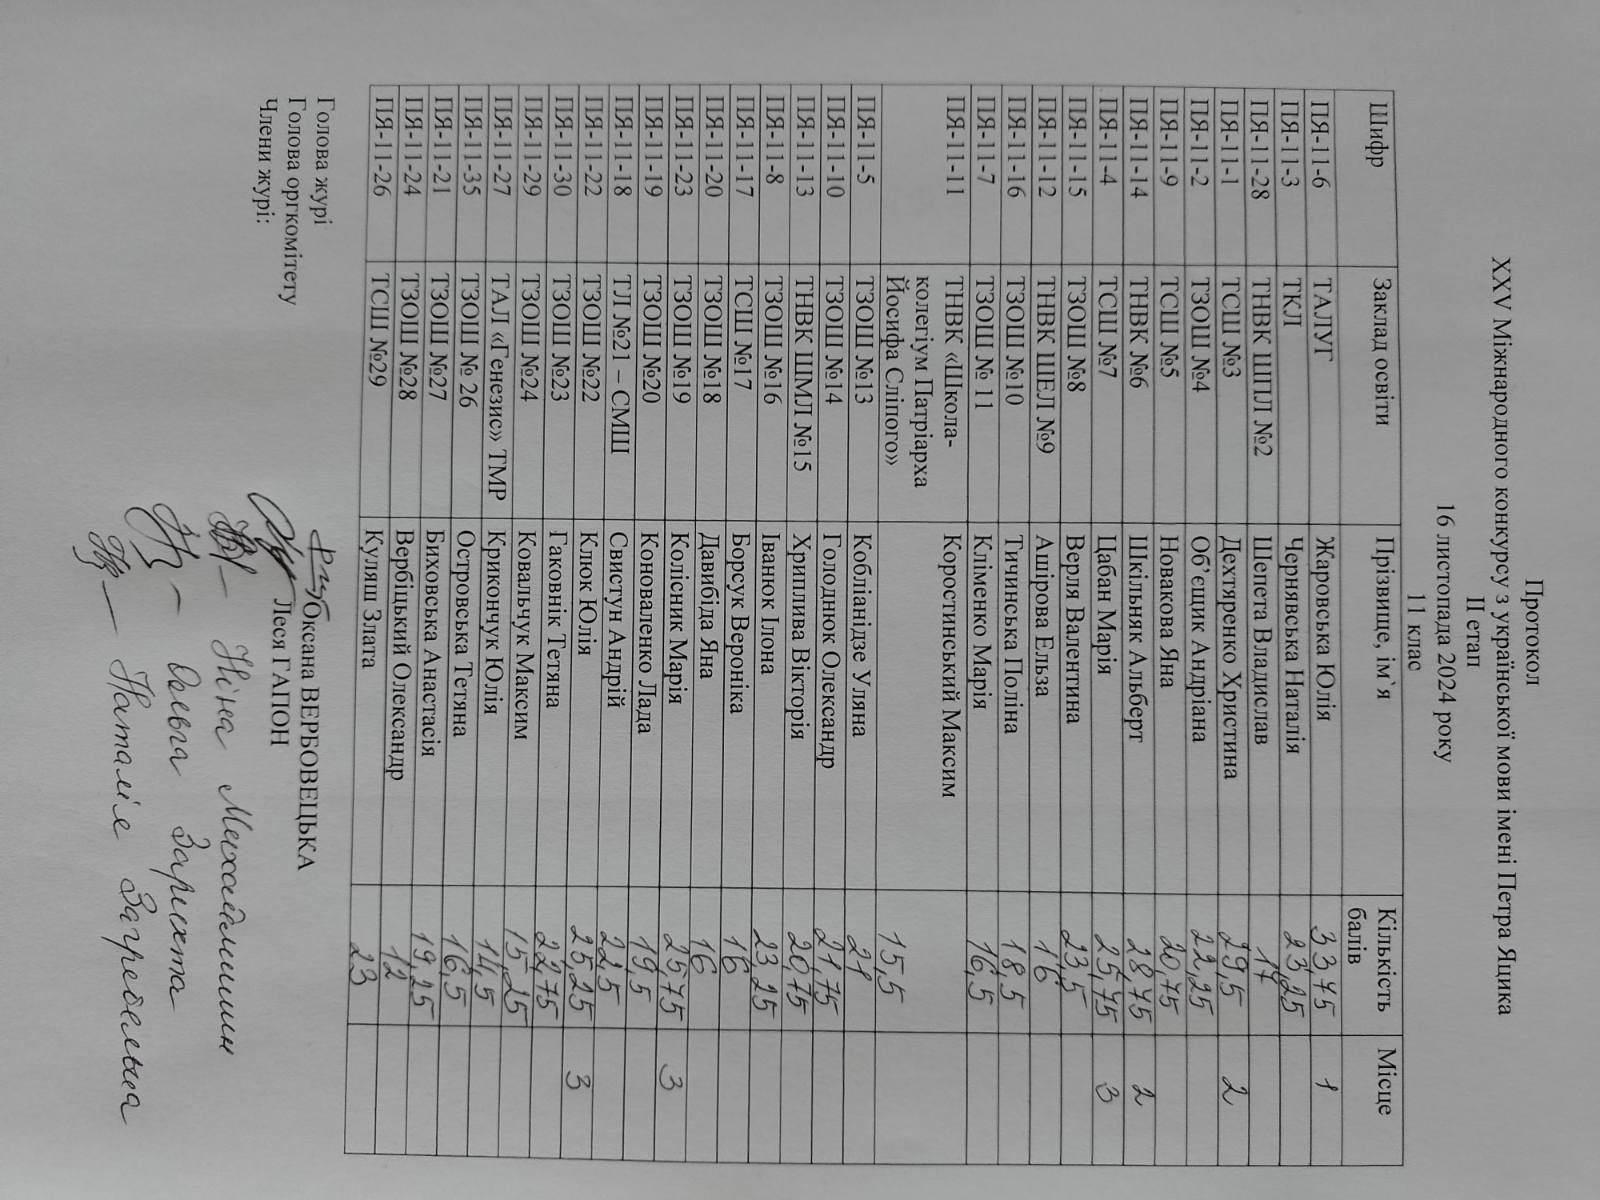 Протокол
XXV Міжнародного конкурсу з української мови імені Петра Яцика
II етап
16 листопада 2024 року
11 клас
Шифр Заклад освіти Прізвище, ім`я Кількість балів Місце
ПЯ-11-6 ТАЛУГ Жаровська Юлія 33,75 1
ПЯ-11-3 ТКЛ Чернявська Наталія 23,25
ПЯ-11-28 ТНВК ШПЛ №2 Шепета Владислав 17
ПЯ-11-1 ТСШ №3 Дехтяренко Христина 29,5 2
ПЯ-11-2 ТЗОШ №4 Об'єщик Андріана 22,25
ПЯ-11-9 ТСШ №5 Новакова Яна 20,75
ПЯ-11-14 ТНВК №6 Шкільняк Альберт 28,75 2
ПЯ-11-4 ТСШ №7 Цабан Марія 25,75 3
ПЯ-11-15 ТЗОШ №8 Верля Валентина 23,5
ПЯ-11-12 ТНВК ШЕЛ №9 Ашірова Ельза 16
ПЯ-11-16 ТЗОШ №10 Тичинська Поліна 18,5
ПЯ-11-7 ТЗОШ № 11 Кліменко Марія 16,5
ПЯ-11-11 ТНВК «Школа-
колегіум Патріарха
Йосифа Сліпого» Коростинський Максим 15,5
ПЯ-11-5 ТЗОШ №13 Кобліанідзе Уляна 21
ПЯ-11-10 ТЗОШ №14 Голоднюк Олександр 21,75
ПЯ-11-13 ТНВК ШМЛ №15 Хриплива Вікторія 20,75
ПЯ-11-8 ТЗОШ №16 Іванюк Ілона 23,25
ПЯ-11-17 ТСШ №17 Борсук Вероніка 16
ПЯ-11-20 ТЗОШ №18 Давибіда Яна 16
ПЯ-11-23 ТЗОШ №19 Колісник Марія 25,75 3
ПЯ-11-19 ТЗОШ №20 Коноваленко Лада 19,5
ПЯ-11-18 ТЛ №21 – СМШ Свистун Андрій 22,5
ПЯ-11-22 ТЗОШ №22 Клюк Юлія 25,25 3
ПЯ-11-30 ТЗОШ №23 Гаковнік Тетяна 22,75
ПЯ-11-29 ТЗОШ №24 Ковальчук Максим 15,25
ПЯ-11-27 ТАЛ «Генезис» ТМР Крикончук Юлія 14,5
ПЯ-11-35 ТЗОШ № 26 Островська Тетяна 16,5
ПЯ-11-21 ТЗОШ №27 Биховська Анастасія 19,25
ПЯ-11-24 ТЗОШ №28 Вербіцький Олександр 12
ПЯ-11-26 ТСШ №29 Куляш Злата 23
Голова журі Оксана ВЕРБОВЕЦЬКА
Голова оргкомітету Леся ГАПОН
Члени журі:
Ніна
Ольга Зарихта
Наталія